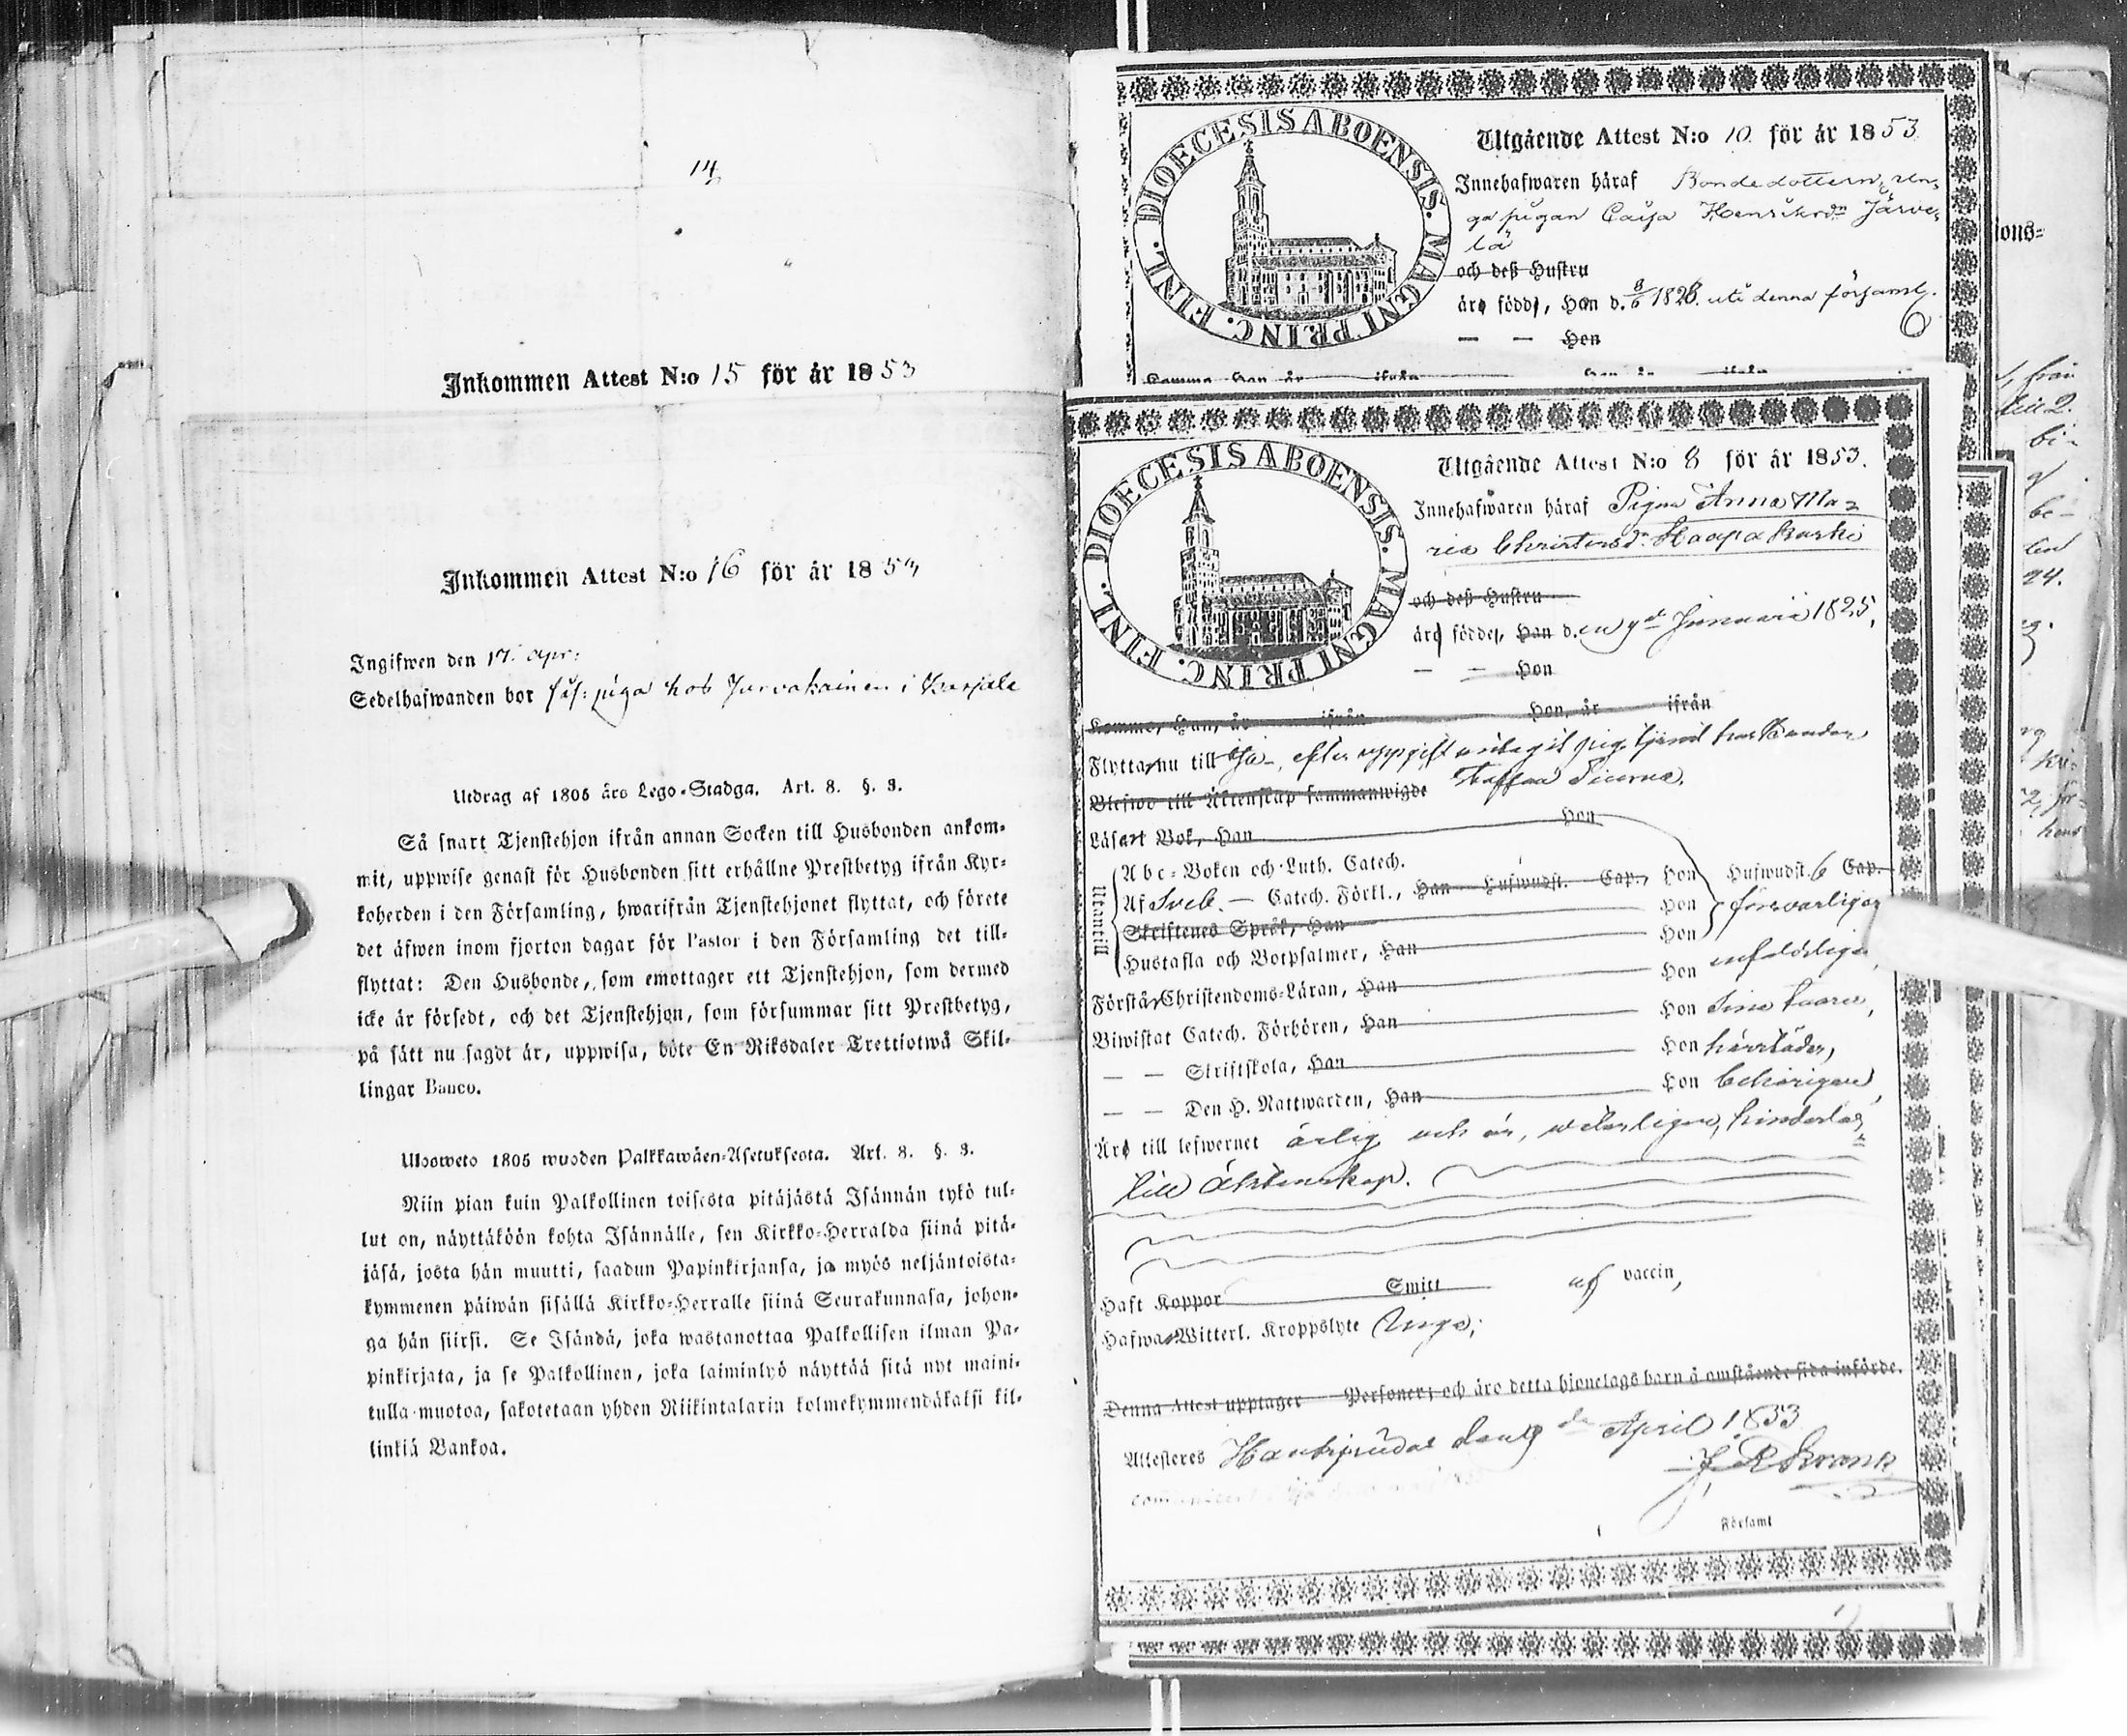 14
Inkommen Attest N:o 15 för år 1853
Inkommen Attest N:o 16 för år 1853
Ingifwen den 17 Apr:
Sedelhafwanden bor såf: piga hos Jurvakainen i Karjala
Utdrag af 1805 års Lego-Stadga. Art. 8. §. 3.
Så snart Tjenstehjon ifrån annan Socken till Husbonden ankom-
mit, uppwise genast för Husbonden sitt erhållne Prestbetyg ifrån Kyr-
koherden i den Församling, hwarifrån Tjenstehjonet flyttat, och förete
det äfwen inom fjorton dagar för Pastor i den Församling det till-
flyttat: Den Husbonde, som emottager ett Tjenstehjon, som dermed
icke är försedt, och det Tjenstehjon, som försummar sitt Prestbetyg,
på sätt nu sagdt är, uppwisa, böte En Riksdaler Trettiotwå Skil-
lingar Banco.
Ulosweto 1805 wuoden Palkkawäen-Asetuksesta. Art. 8. §. 3.
Niin pian kuin Palkollinen toisesta pitäjästä Isännän tykö tul-
lut on, näyttäköön kohta Isännälle, sen Kirkko-Herralda siinä pitä-
jäsä, josta hän muutti, saadun Papinkirjansa, ja myös neljäntoista-
kymmenen päiwän sisällä Kirkko-Herralle siinä Seurakunnasa, johon-
ga hän siirsi. Se Isändä, joka wastanottaa Palkollisen ilman Pa-
pinkirjata, ja se Palkollinen, joka laiminlyö näyttää sitä nyt maini-
tulla muotoa, sakotetaan yhden Riikintalarin kolmekymmendäkaksi kil-
linkiä Bankoa.
DIOECESIS ABOENSIS. MAGNI PRINC. FINL.
Utgående Attest N:o 10 för år 1853
Innehafwaren häraf Bondedottern, un-
ga pigan Caisa Henriksdr Järve-
lä
och deß Hustru
äro födde, Han d. 8/6 1828. uti denna församl.
— — Hon
Komma, Han, år ifrån Hon, år ifrån
DIOECESIS ABOENSIS. MAGNI PRINC. FINL.
Utgående Attest N:o 8 för år 1853.
Innehafwaren häraf Pigan Anna Ma-
ria Christersdr Haapakoski
och deß Hustru
äro födde, Han d. en 9de Januarii 1825,
— — Hon
Komma, Han, år ifrån Hon, år ifrån
Flytta nu till Ijo, efter uppgift antagit pig tjenst hos Bonden
Staffan Tiurna.
Blefwo till Äktenskap sammanwigde
Läsa rt Bok, Han Hon
Utantill
Abc-Boken och Luth. Catech.
Af Sveb. — Catech. Förkl., Han Hufwudst. Cap., Hon Hufwudst. 6 Cap.
Skriftenes Språk, Han Hon försvarligen
Hustafla och Botpsalmer, Han Hon
Förstå Christendoms-Läran, Han Hon enfaldligen,
Biwistat Catech. Förhören, Han Hon sina laaren,
— — Skriftskola, Han Hon
— — Den H. Nattwarden, Han Hon behörigen,
Äro till lefwernet ärlig och är, veterligen, hinderlös
till äktenskap.
Haft Koppor Smitt af vaccin,
Hafwa Witterl. Kroppslyte Inga;
Denna Attest upptager Personer; och äro detta hjonelags barn å omstående sida införde.
Attesteres Haukipudas den 9de April 1853
J R Frank
Församl
ions-
från
till 2.
bi-
24.